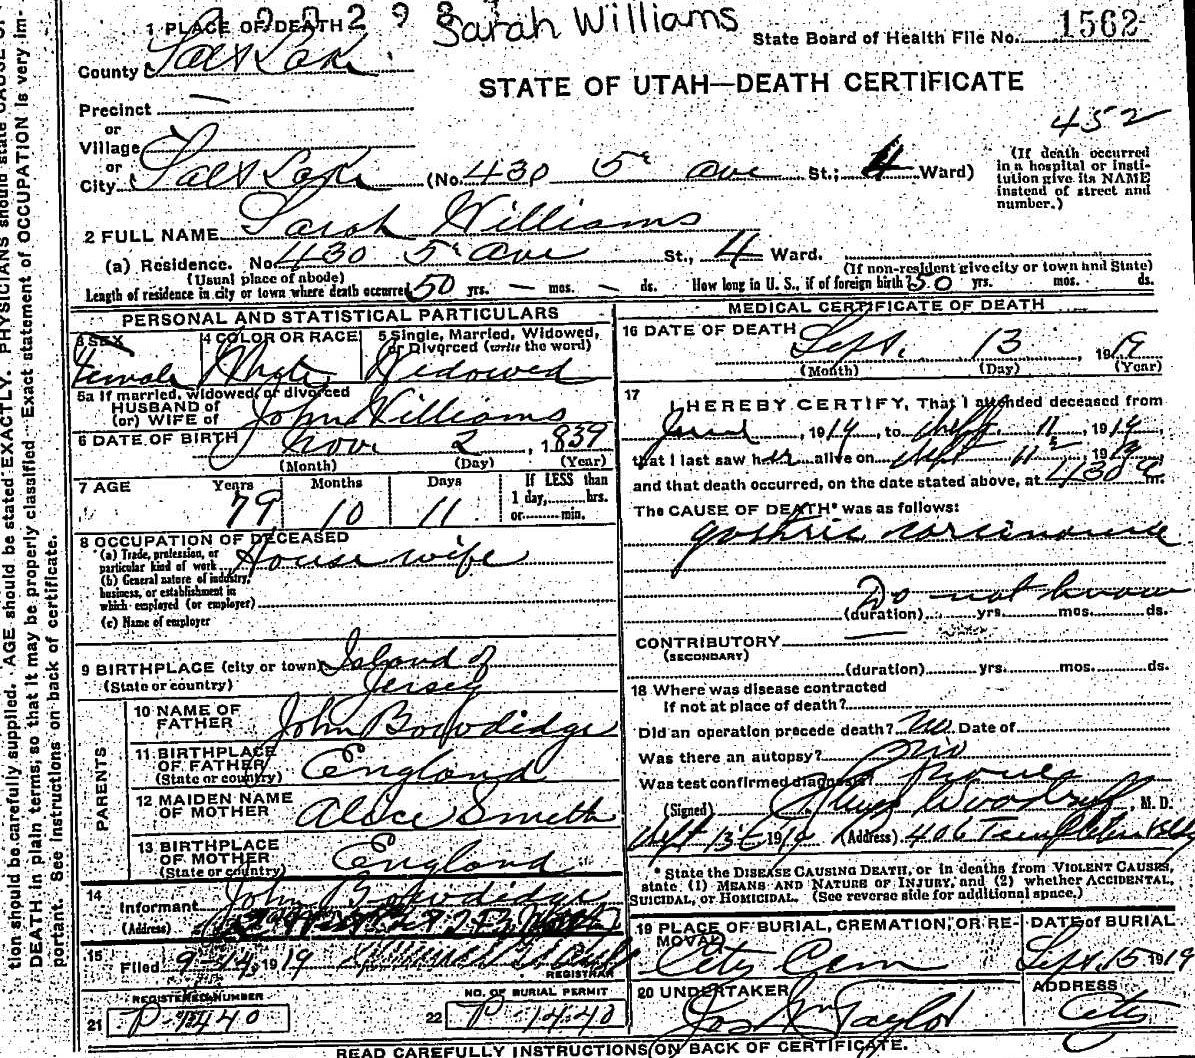 Sarah Williams
State Board of Health File No. 1562
STATE OF UTAH—DEATH CERTIFICATE
1 PLACE OF DEATH
County Salt Lake
Precinct —
or
Village
or
City Salt Lake (No. 430 5th ave St.; 4 Ward)
452
(If death occurred in a hospital or insti-
tution give its NAME
instead of street and
number.)
2 FULL NAME Sarah Williams
(a) Residence. No. 430 5th ave St., 4 Ward.
(Usual place of abode)
(If non-resident give city or town and State)
Length of residence in city or town where death occurred 50 yrs. — mos. — ds. How long in U. S., if of foreign birth? 50 yrs. mos. ds.
PERSONAL AND STATISTICAL PARTICULARS
3 SEX
Female
4 COLOR OR RACE
White
5 Single, Married, Widowed,
or Divorced (write the word)
Widowed
5a If married, widowed, or divorced
HUSBAND of
(or) WIFE of John Williams
6 DATE OF BIRTH Nov. 2, 1839
(Month) (Day) (Year)
7 AGE Years Months Days If LESS than
1 day, hrs.
or min.
79 10 11
8 OCCUPATION OF DECEASED
(a) Trade, profession, or
particular kind of work House wife
(b) General nature of industry,
business, or establishment in
which employed (or employer)
(c) Name of employer
9 BIRTHPLACE (city or town) Island of
(State or country) Jersey
PARENTS
10 NAME OF
FATHER John Bowdidge
11 BIRTHPLACE
OF FATHER
(State or country) England
12 MAIDEN NAME
OF MOTHER Alice Smith
13 BIRTHPLACE
OF MOTHER
(State or country) England
14
Informant John Bowdidge
(Address)
15
Filed 9-14, 1919
REGISTRAR
REGISTERED NUMBER
21 P-1440
NO. OF BURIAL PERMIT
22 P 1440
MEDICAL CERTIFICATE OF DEATH
16 DATE OF DEATH Sept. 13, 1919
(Month) (Day) (Year)
17
I HEREBY CERTIFY, That I attended deceased from
June, 1919, to Sept 11, 1919
that I last saw her alive on Sept 11th, 1919
and that death occurred, on the date stated above, at 430 a m.
The CAUSE OF DEATH* was as follows:
gastric carcinoma
Do not know
(duration) yrs. mos. ds.
CONTRIBUTORY —
(SECONDARY)
(duration) yrs. mos. ds.
18 Where was disease contracted
if not at place of death?
Did an operation precede death? No Date of
Was there an autopsy? no
Was test confirmed diagnosis? none
(Signed) Woodruff, M. D.
Sept 13th 1919 (Address) 406 Templeton Bldg
* State the DISEASE CAUSING DEATH, or in deaths from VIOLENT CAUSES,
state (1) MEANS AND NATURE OF INJURY, and (2) whether ACCIDENTAL,
SUICIDAL, or HOMICIDAL. (See reverse side for additional space.)
19 PLACE OF BURIAL, CREMATION, OR RE-
MOVAL
City Cem
DATE of BURIAL
Sept. 15 1919
20 UNDERTAKER
Jos Wm Taylor
ADDRESS
City
READ CAREFULLY INSTRUCTIONS ON BACK OF CERTIFICATE.
tion should be carefully supplied. AGE should be stated EXACTLY. PHYSICIANS should state CAUSE OF
DEATH in plain terms, so that it may be properly classified. Exact statement of OCCUPATION is very im-
portant. See instructions on back of certificate.